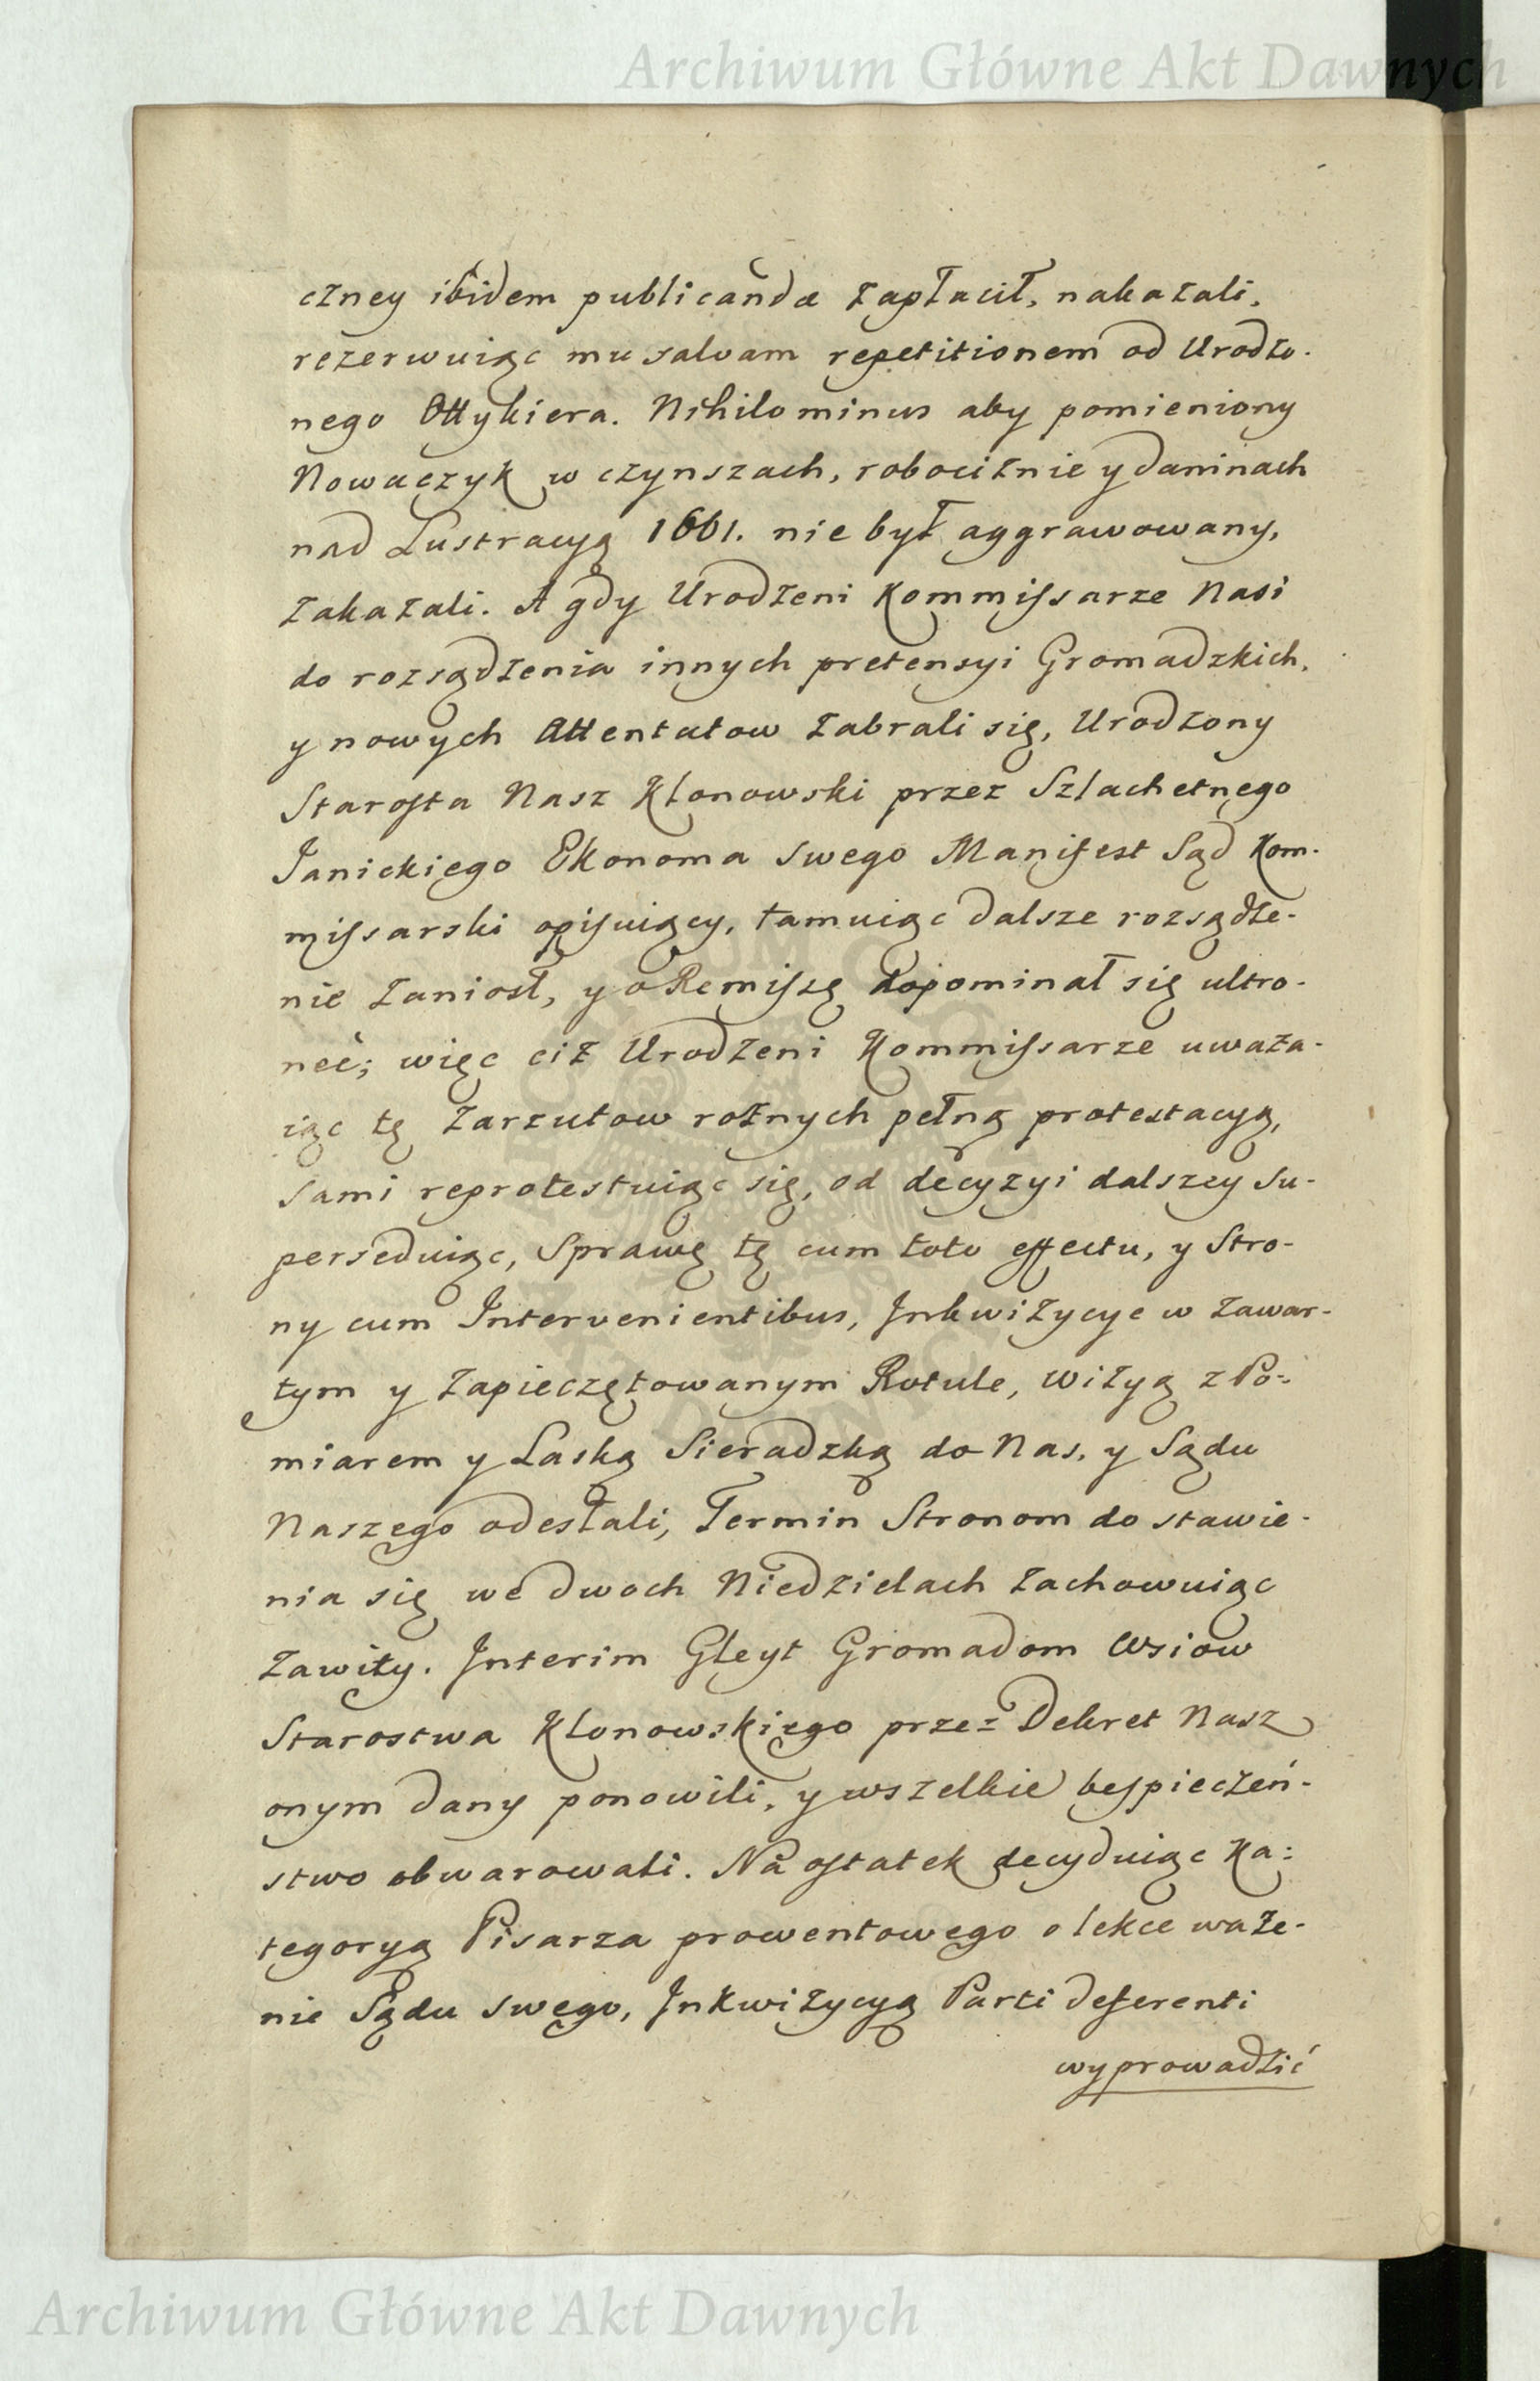 Archiwum Główne Akt Dawnych
czney ibidem publicandæ zapłacił, nakazali,
rezerwuiąc mu salvam repetitionem od Urodzo-
nego Ottykiera. Nihilominus aby pomieniony
Nowaczyk w czynszach, robociznie y daninach
nad Lustracyą 1661. nie był aggrawowany,
zakazali. A gdy Urodzeni Kommissarze Nasi
do rozsądzenia innych pretensyi Gromadzkich,
y nowych Attentatow zabrali się, Urodzony
Starosta Nasz Klonowski przez Szlachetnego
Janickiego Ekonoma swego Manifest Sąd Kom-
missarski opisuiący, tamuiąc dalsze rozsądze-
nie zaniosł, y o Remissę dopominał się ultro-
neè; więc ciż Urodzeni Kommissarze uważa-
iąc tę zarzutow rożnych pełną protestacyą,
sami reprotestuiąc się, od decyzyi dalszey su-
perseduiąc, Sprawę tę cum toto effectu, y Stro-
ny cum Intervenientibus, Inkwizycye w zawar-
tym y zapieczętowanym Rotule, wizyą z Po-
miarem y Laską Sieradzką do Nas, y Sądu
Naszego odesłali, Termin Stronom do stawie-
nia się we dwoch Niedzielach zachowuiąc
zawity. Interim Gleyt Gromadom Wsiow
Starostwa Klonowskiego przez Dekret Nasz
onym dany ponowili, y wszelkie bespieczeń-
stwo obwarowali. Na ostatek decyduiąc Ka-
tegoryą Pisarza prowentowego o lekce waże-
nie Sądu swego, Inkwizycyą Parti deferenti
wyprowadzić
Archiwum Główne Akt Dawnych